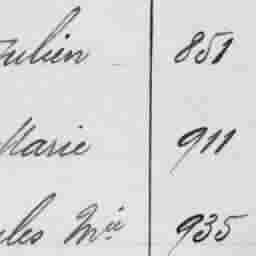 Julien 851
Marie 911
les Mie 935